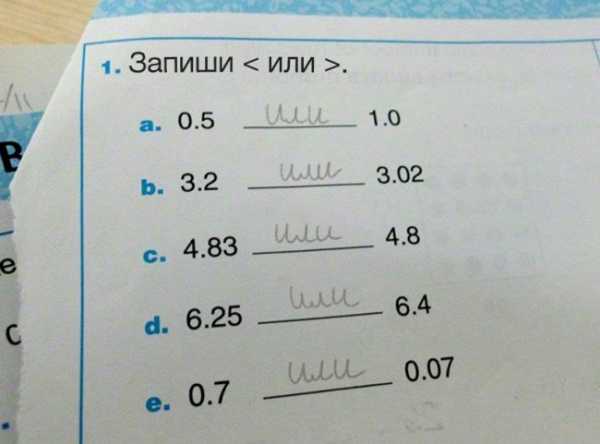 1. Запиши < или >.
a. 0.5 или 1.0
b. 3.2 или 3.02
c. 4.83 или 4.8
d. 6.25 или 6.4
e. 0.7 или 0.07
В
е
С